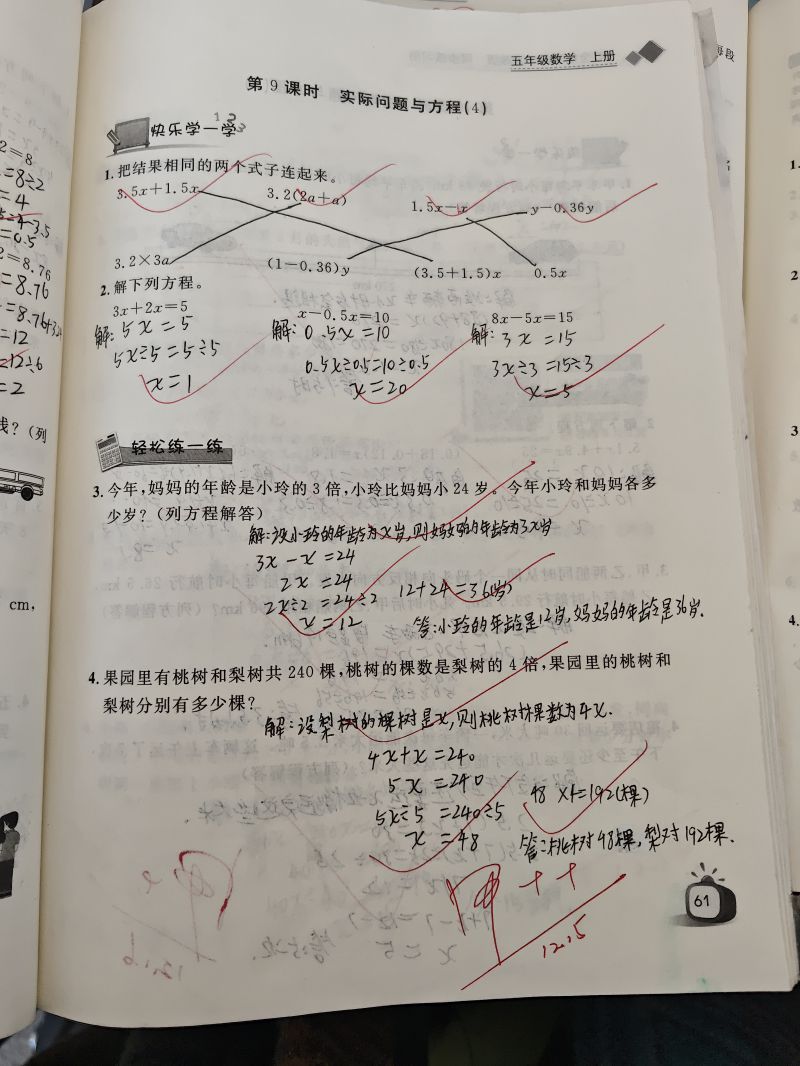 五年级数学 上册
第9课时 实际问题与方程(4)
快乐学一学
1.把结果相同的两个式子连起来。
3.5x+1.5x 3.2(2a+a) 1.5x-x y-0.36y
3.2×3a (1-0.36)y (3.5+1.5)x 0.5x
2.解下列方程。
3x+2x=5 x-0.5x=10 8x-5x=15
解:5x=5 解:0.5x=10 解:3x=15
5x÷5=5÷5 0.5x÷0.5=10÷0.5 3x÷3=15÷3
x=1 x=20 x=5
轻松练一练
3.今年,妈妈的年龄是小玲的3倍,小玲比妈妈小24岁。今年小玲和妈妈各多
少岁?(列方程解答)
解:设小玲的年龄为x岁,则妈妈的年龄为3x岁
3x-x=24
2x=24
2x÷2=24÷2 12+24=36(岁)
x=12
答:小玲的年龄是12岁,妈妈的年龄是36岁.
4.果园里有桃树和梨树共240棵,桃树的棵数是梨树的4倍,果园里的桃树和
梨树分别有多少棵?
解:设梨树的棵树是x,则桃树棵数为4x.
4x+x=240
5x=240
5x÷5=240÷5 48×4=192(棵)
x=48
答:桃树48棵,梨树192棵.
甲++
12.15
61